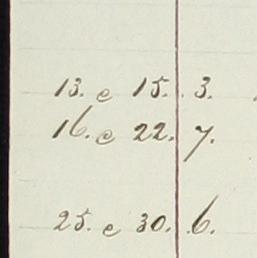 13. e 15. 3.
16. e 22. 7.
25. e 30. 6.